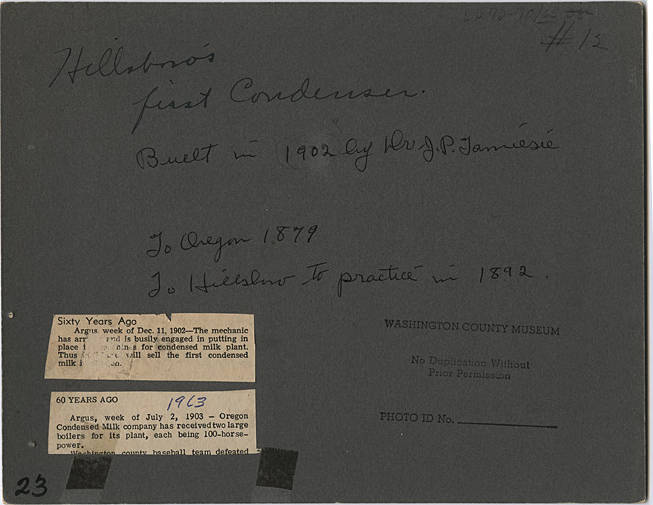 #12
Hillsboro's
first Condenser.
Built in 1902 by Dr J.P. Tamiesie
To Oregon 1879
To Hillsboro to practice in 1892.
Sixty Years Ago
Argus week of Dec. 11, 1902—The mechanic
has and is busily engaged in putting in
place for condensed milk plant.
Thus will sell the first condensed
milk
60 YEARS AGO 1963
Argus, week of July 2, 1903 — Oregon
Condensed Milk company has received two large
boilers for its plant, each being 100-horse-
power.
Washington county baseball team defeated
WASHINGTON COUNTY MUSEUM
No Duplication Without
Prior Permission
PHOTO ID No.
23